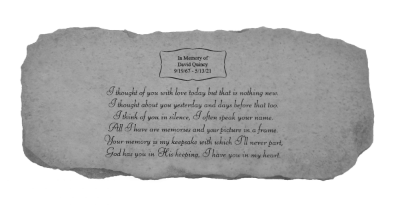 In Memory of
David Quincy
9/15/67 - 5/13/21
I thought of you with love today but that is nothing new.
I thought about you yesterday and days before that too.
I think of you in silence, I often speak your name.
All I have are memories and your picture in a frame.
Your memory is my keepsake with which I'll never part,
God has you in His keeping, I have you in my heart.